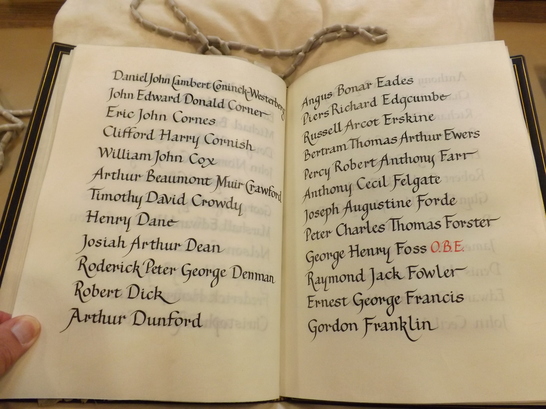 Daniel John Lambert Coninck-Westenberg
John Edward Donald Corner
Eric John Cornes
Clifford Harry Cornish
William John Cox
Arthur Beaumont Muir Crawford
Timothy David Crowdy
Henry Dane
Josiah Arthur Dean
Roderick Peter George Denman
Robert Dick
Arthur Dunford
Angus Bonar Eades
Piers Richard Edgcumbe
Russell Arcot Erskine
Bertram Thomas Arthur Ewers
Percy Robert Anthony Farr
Anthony Cecil Felgate
Joseph Augustine Forde
Peter Charles Thomas Forster
George Henry Foss O.B.E.
Raymond Jack Fowler
Ernest George Francis
Gordon Franklin